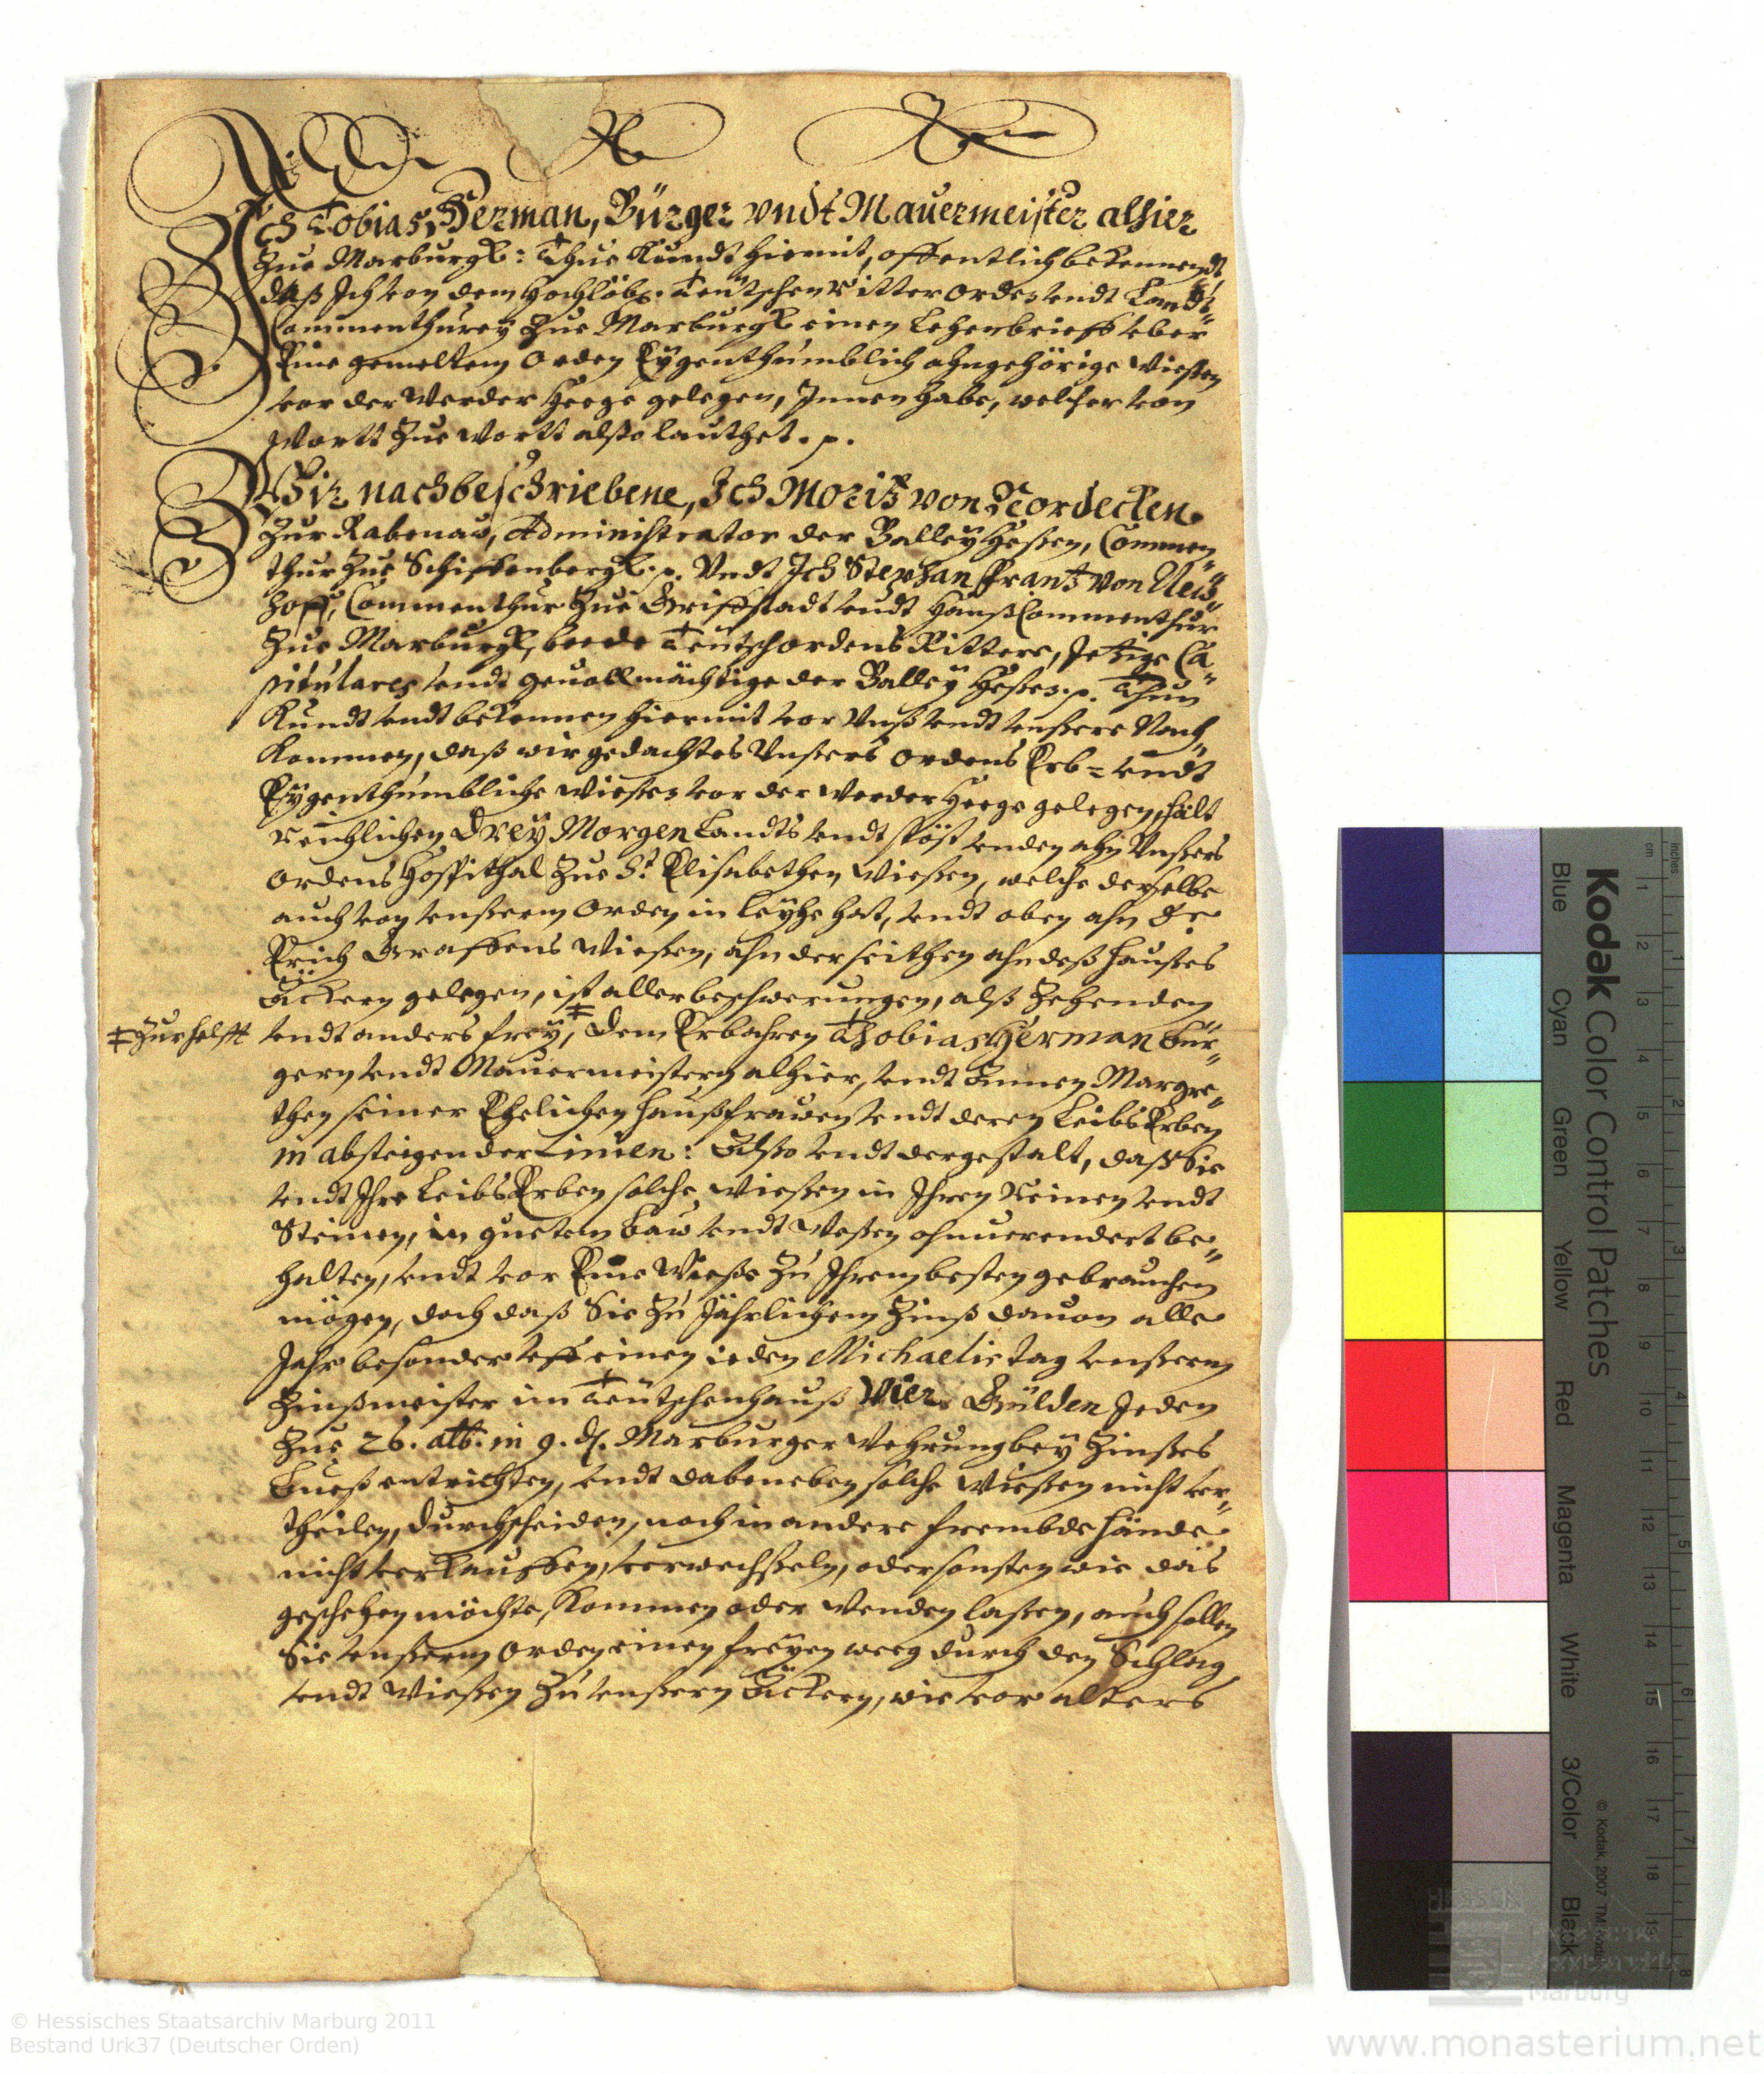 Ich Tobias Herman, Bürger vndt Mauermeister alhier
Zue Marburgk: Thue Kundt hiemit, offentlich bekennendt,
daß Ich von dem Hochlöb. Teutschen Ritter Orden vndt Landt„
Commenthurey Zue Marburgk einen Lehenbrieff vber
Eine gemeltem Orden Eÿgenthumblich ahngehörige Wießen
vor der Werder Heege gelegen, Innen habe, welcher von
Wortt Zue Wortt alßo lauthet. p.
Wir nachbeschriebene, Ich Moritz von Nordecken
Zur Rabenaw, Administrator der Balleÿ Heßen, Commen„
thur Zue Schiffenbergk. p. Vndt Ich Stephan Frantz von Neü„
hoff, Commenthur Zue Griffstadt vndt Hauß Commenthur
Zue Marburgk, beede Teutschordens Rittere, Jetzige Ca„
pitulares vndt Geuollmächtige der Balleÿ Heßen. p. Thun
Kundt vndt bekennen hiermit vor Vnß vndt vnßere Nach„
kommen, daß wir gedachtes Vnßers Ordens Erb= vndt
Eÿgenthumbliche Wießen vor der Werder Heege gelegen, halt
reichlichen Dreÿ Morgen Landts vndt stöst vnden ahn Vnßers
Ordens Hospithal Zue St Elisabethen Wießen, welche derselbe
auch von vnßerm Orden in leÿhe hat, vndt oben ahn
Erich Graffens Wießen, ahn der seithen ahn deß Haußes
Äckern gelegen, ist aller beschwerungen, alß Zehenden
‡ Zur helfft
vndt anders freÿ, ‡ dem Erbahren Thobias Herman Bür„
gern vndt Mauermeistern alhier, vndt Annen Margre„
then seiner Ehelichen Haußfrawen vndt deren LeibsErben
in absteigender Linien: Alßo vndt dergestalt, daß Sie
vndt Ihre LeibsErben solche Wießen in Ihren Reinen vndt
Steinen, in guetem baw vndt Weßen ohnuerendert be„
halten, vndt vor Eine Wieße Zu Ihrem besten gebrauchen
mögen, doch daß Sie Zu Jährlichem Zinß dauon alle
Jahr besonder vff einen ieden Michaelis tag vnßerm
Zinßmeister im Teutschenhauß Vier Gülden Jeden
Zue 26. alb. in 9. d. Marburger Wehrung beÿ Zinßes
Bueß entrichten, vndt dabeneben solche Wießen nicht ver„
theilen, durchscheiden, noch in andere frembde hände
nicht verkauffen, verwechßeln, oder sonsten wie das
geschehen möchte, kommen oder wenden laßen, auch sollen
Sie vnßerm Orden einen freÿen weeg durch den Schlag
vndt Wießen Zu vnßern Äckern, wie vor alters
Kodak Color Control Patches
Blue
Cyan
Green
Yellow
Red
Magenta
White
3/Color
Black
© Kodak, 2007 TM: Kodak
© Hessisches Staatsarchiv Marburg 2011
Bestand Urk37 (Deutscher Orden)
www.monasterium.net